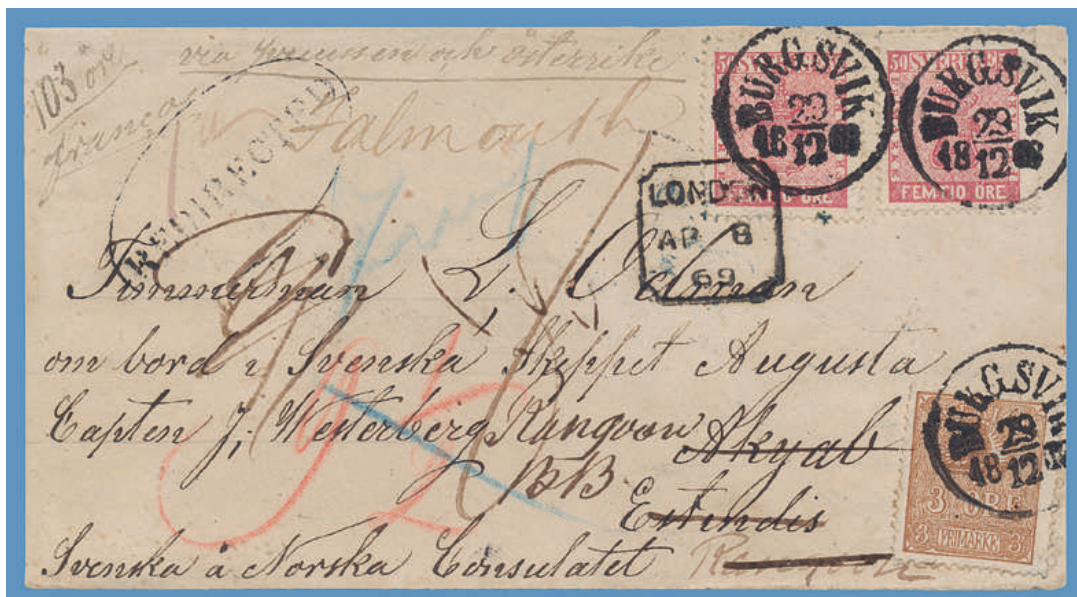 103 öre
franco
via Preussen och Österrike
Falmouth
REDIRECTED
50 SVERIGE
FEMTIO ÖRE
BURGSVIK
29
12
18 68
50 SVERIGE
FEMTIO ÖRE
BURGSVIK
29
12
18 68
LONDON
AP 8
69
Timmerman L. Oelman
om bord i Svenska Skeppet Augusta
Capten J. Westerberg Rangoon Akyab
BB.
Estindis
Svenska à Norska Consulatet Rangoon
BURGSVIK
29
12
18
3 ÖRE
3 FRIMÄRKE 3